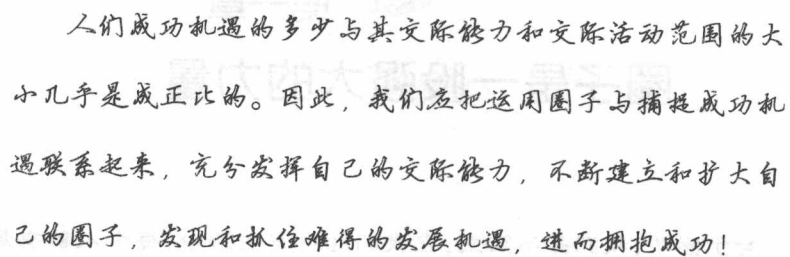 人们成功机遇的多少与其交际能力和交际活动范围的大
小几乎是成正比的。因此，我们应把运用圈子与捕捉成功机
遇联系起来，充分发挥自己的交际能力，不断建立和扩大自
己的圈子，发现和抓住难得的发展机遇，进而拥抱成功！